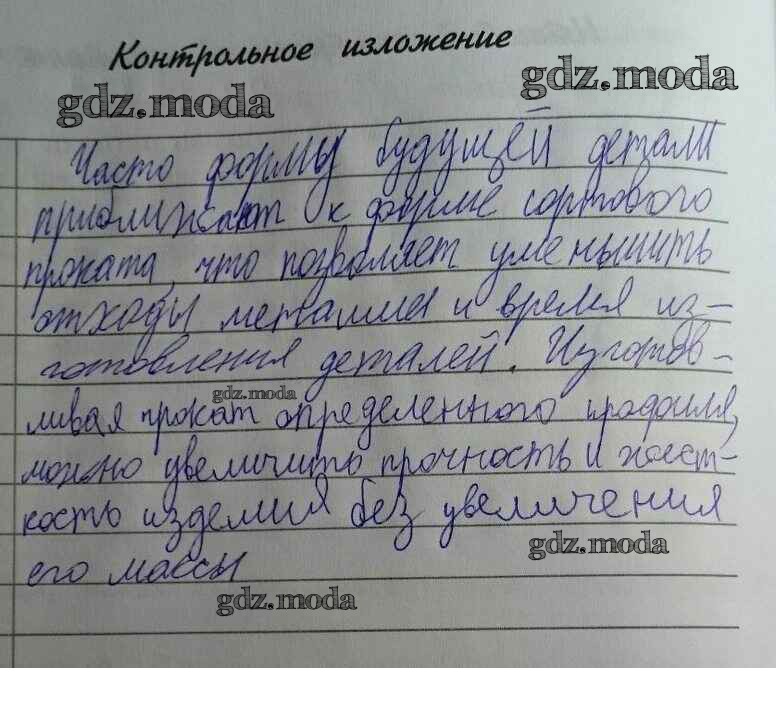 Контрольное изложение
gdz.moda
gdz.moda
Часто формы будущей детали
приближают к форме сортового
проката, что позволяет уменьшить
отходы металла и время из-
готовления деталей. Изготов-
gdz.moda
ливая прокат определенного профиля,
можно увеличить прочность и жест-
кость изделия без увеличения
gdz.moda
его массы
gdz.moda